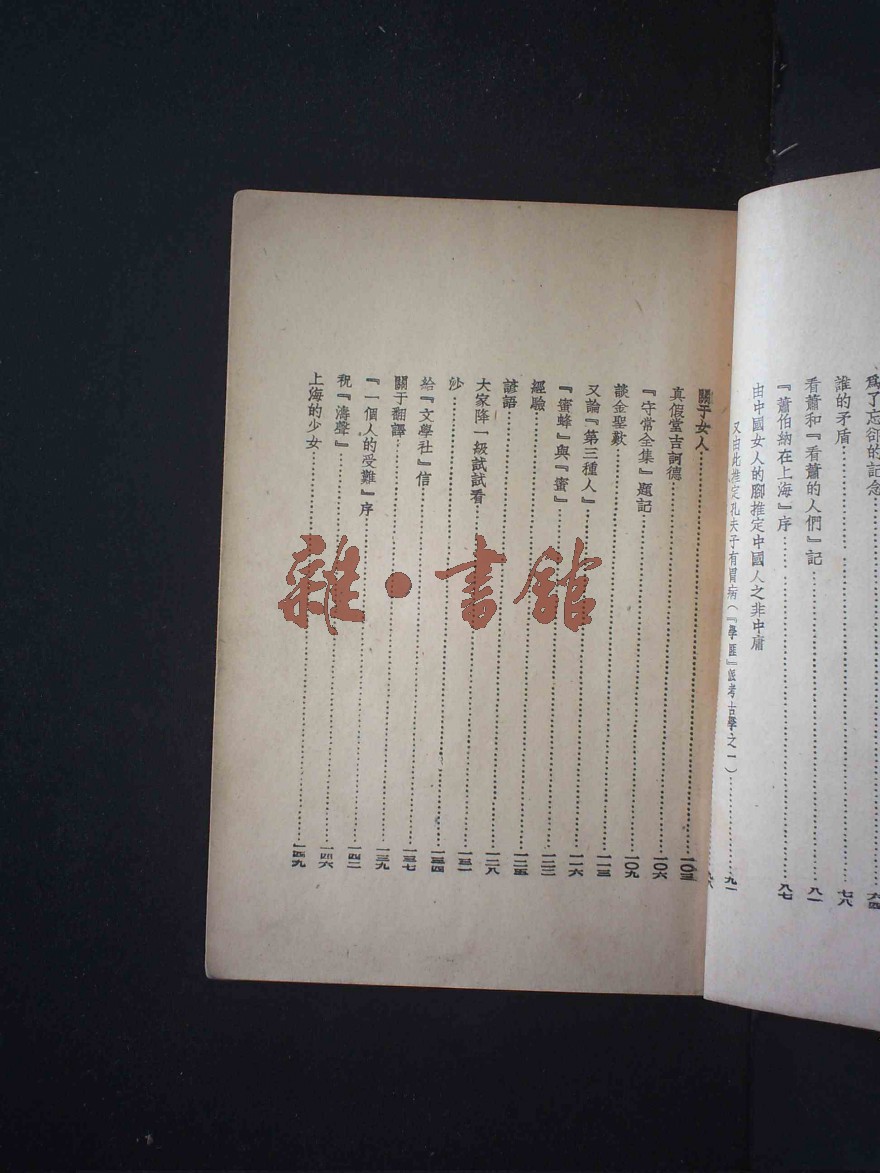 爲了忘卻的記念……六四
誰的矛盾……七八
看蕭和『看蕭的人們』記……八一
『蕭伯納在上海』序……八七
由中國女人的腳推定中國人之非中庸
又由此推定孔夫子有胃病（『學匪』派考古學之一）……九一
關于女人……一〇三
真假堂吉訶德……一〇六
『守常全集』題記……一〇九
談金聖歎……一一三
又論『第三種人』……一一六
『蜜蜂』與『蜜』……一二二
經驗……一二五
諺語……一二八
大家降一級試試看……一三一
沙……一三四
給『文學社』信……一三七
關于翻譯……一三九
『一個人的受難』序……一四二
祝『濤聲』……一四六
上海的少女……一四九
雜·書館